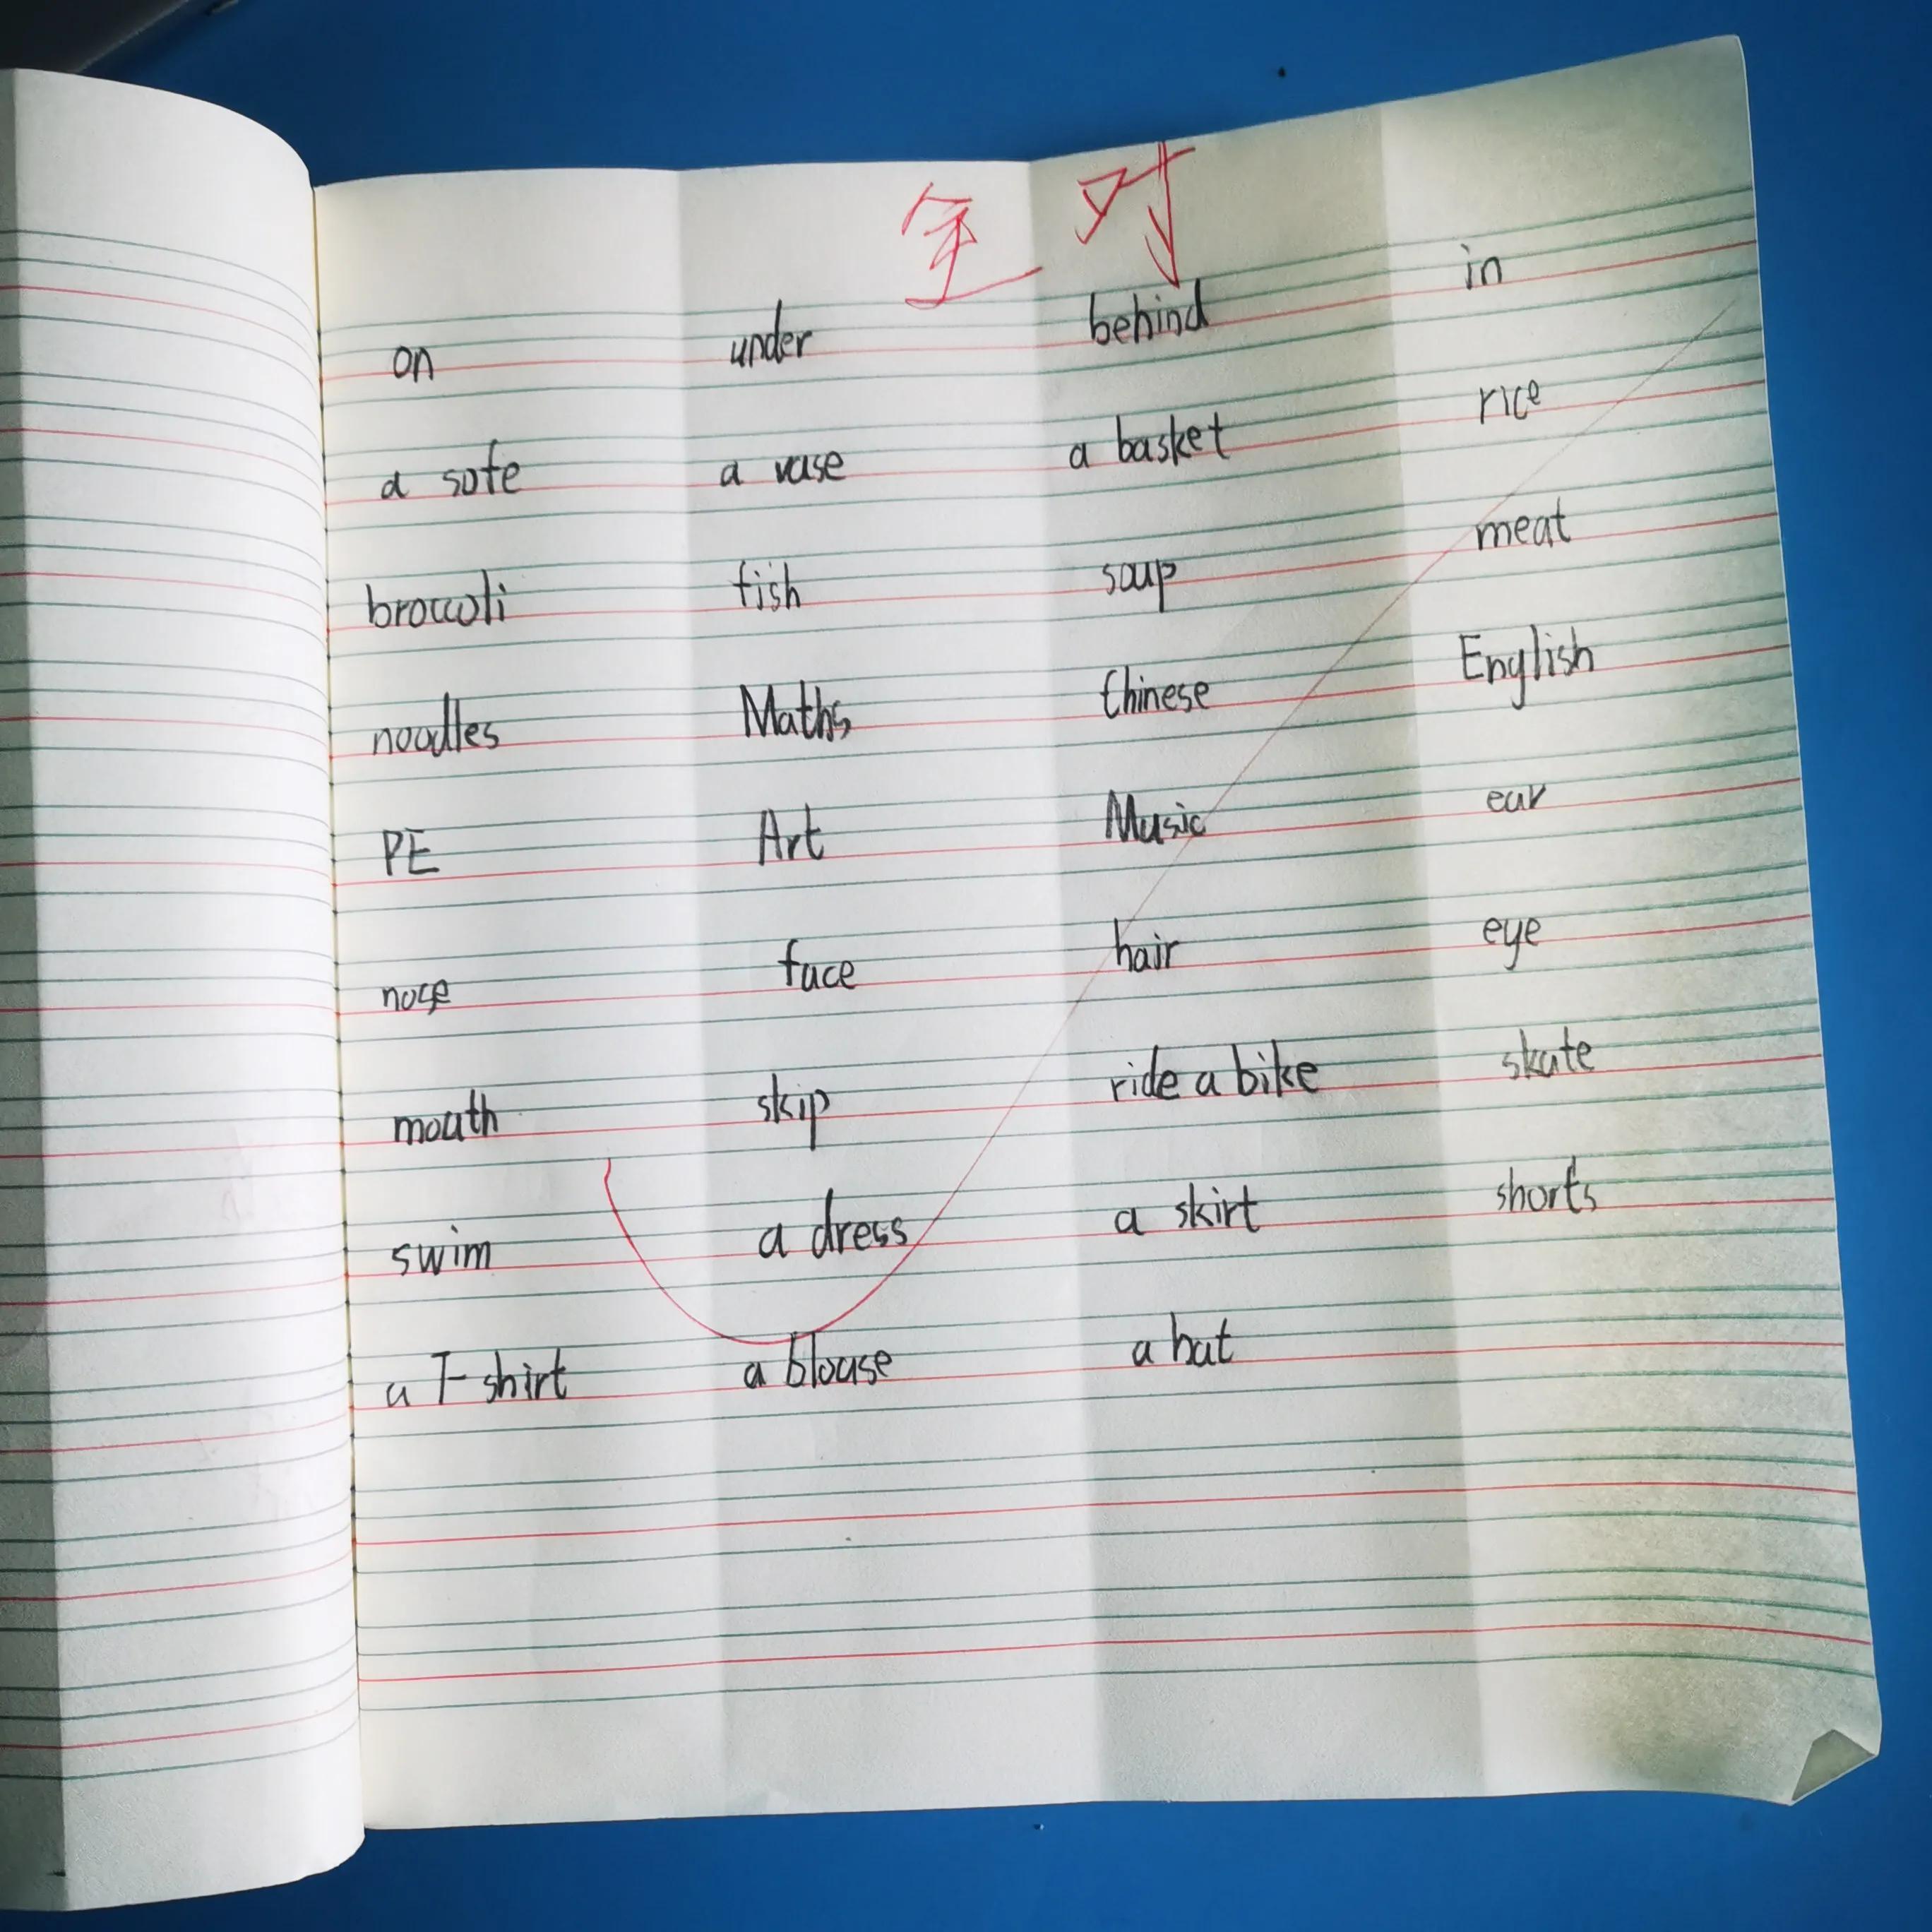 全对
on under behind in
a sofe a vase a basket rice
broccoli fish soup meat
noodles Maths Chinese English
PE Art Music ear
nose face hair eye
mouth skip ride a bike skate
swim a dress a skirt shorts
a T-shirt a blouse a hat